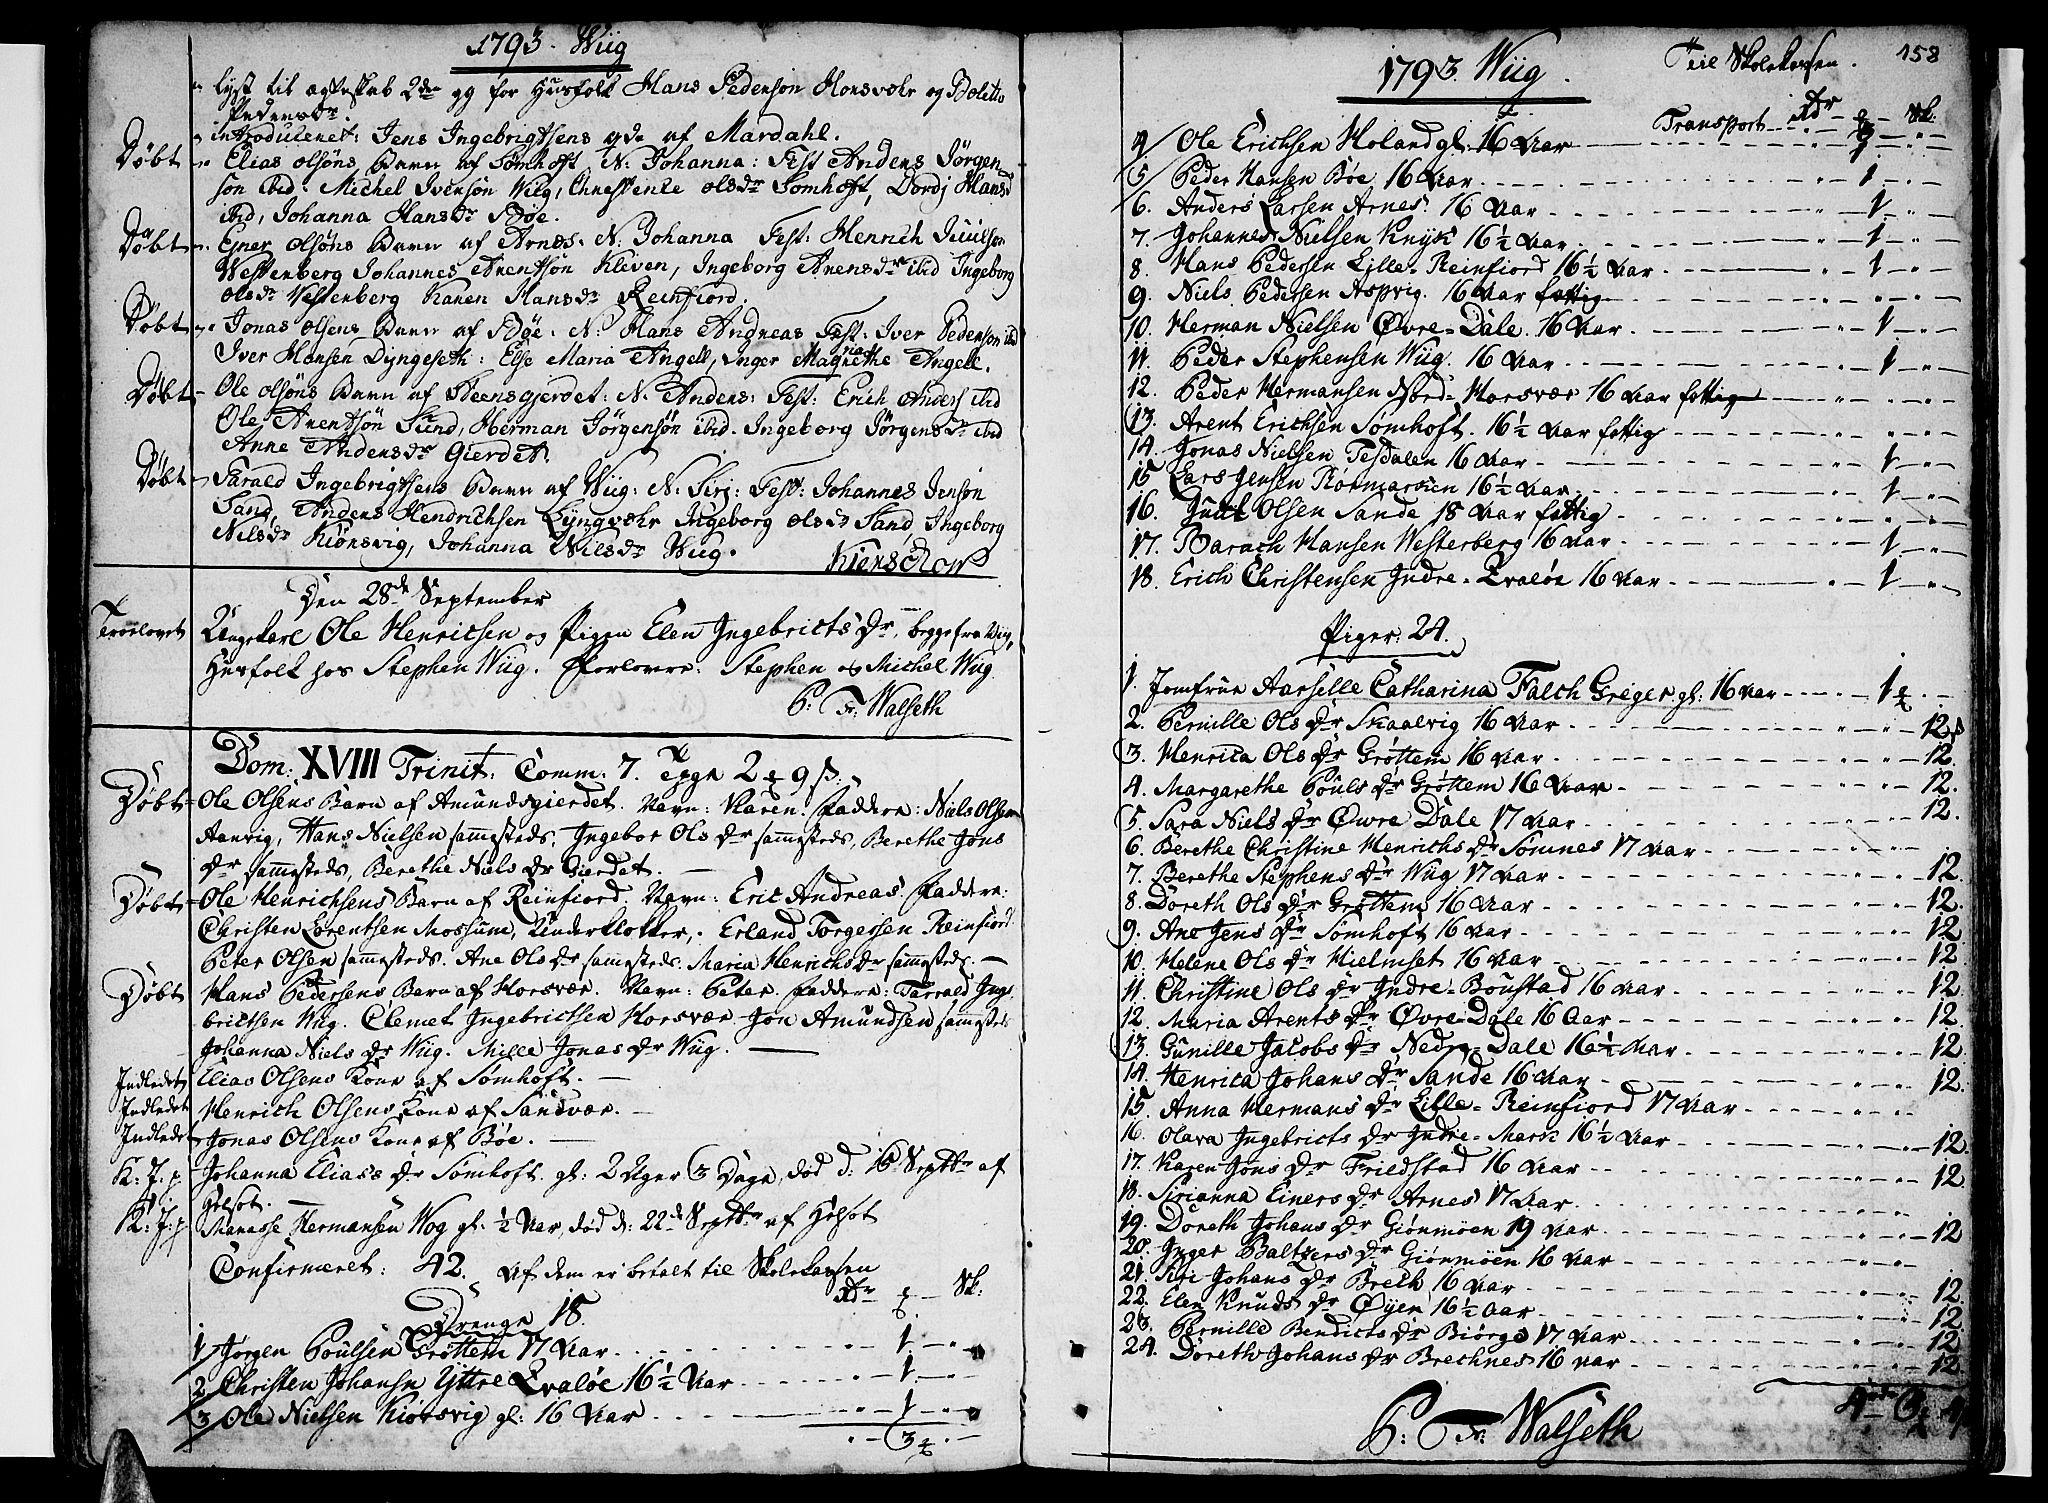 1793. Wiig
lyst til ægteskab 2den gg for Husfolk Hans Pedersøn Horsvær og
Pedersdr.
introduceret: Jens Ingebrigtsens qde af Mardahl.
Døbt Elias olsøns Barn af Sømhoft N: Johanna: Test Anders Jørgen
søn ibid. Michel Iversøn Wiig, olsdr Somhoft, Dordj Hansd
ibid, Johanna Hansdr Bøe.
Døbt Ejner olsøns Barn af Arnes. N: Johanna Test: Henrich Juulsøn
Westerberg Johannes Arentsøn Kleven, Ingeborg Arensdr ibid Ingeborg
olsdr Vesterberg Karen Hansdr Reinfiord.
Døbt Jonas olsens Barn af Bøe. N: Hans Andreas Test: Iver Pedersøn ibid
Iver Hansen Dyngeseth: Else Maria Angell, Inger Magrethe Angell.
Døbt Ole olsøns Barn af Steensgierdet: N. Anders: Test: Erich Anders ibid
Ole Arentsøn Sund, Herman Jørgensøn ibid. Ingeborg Jørgensdr ibid
Anne Andersdr Gierdet.
Døbt Tarald Ingebrigtsens Barn af Wiig: N: Sirj: Test: Johannes Jensøn
Sand, Anders Hendrichsen Lyngværh Ingeborg olsdr Sand, Ingeborg
Nilsdr Kiønsvig, Johanna Nilsdr Wiig.
Den 28de September
Troelovet Ungekarl Ole Henricsen og Pigen Elen Ingebricts Dr, begge fra Wiig,
Husfolk hos Stephen Wiig. Forlovere: Stephen og Michel Wiig
P: Fr: Walseth
Dom: XVIII Trinit: Comm: 7.
Døbt Ole Olsens Barn af Amundsgierdet. Navn: Karen. Faddere: Niels Olsen
Aanvig, Hans Nielsen sammesteds, Ingebor Ols Dr sammesteds, Berethe Jons
Dr sammesteds, Berethe Niels Dr Gierdet.
Døbt Ole Henrichsens Barn af Reinfiord. Navn: Eric Andreas. Faddere:
Christen Lorentsen Mossum, Underklokker, Erland Torgersen Reinfiord
Peter Olsen sammesteds. Ane Ols Dr sammesteds. Maria Henrichs Dr sammesteds.
Døbt Hans Pedersens Barn af Horsvær. Navn: Peter. Faddere: Tarrald Inge
brictsen Wiig. Clemet Ingebrictsen Horsvær. Jon Amundsen sammesteds
Johanna Niels Dr Wiig. Mille Jonas Dr Wiig.
Indledet Elias Olsens Kone af Sømhoft.
Indledet Henrich Olsens Kone af Sandvær.
Indledet Jonas Olsens Kone af Bøe.
K: J: p: Johanna Elias's Dr Sømhoft. gl: 2 Uger 3 Dage, død d. 16 Septbr af
Helsot.
K: J: p: Manasse Hermansen Wog gl: ½ Aar, død d: 22de Septbr af Helsot
Confirmeret: 42. Af dem er betalt til Skolekassen
Rdr Sk:
Drenge 18.
1 Jørgen Poulsen Grøttem 17 Aar 1
2 Christen Johansn Yttre Evaløe 16½ Aar 1
3 Ole Nielsen Kiørsvig gl: 16 Aar 1
3
1793. Wiig. Til Skolekassen. 158
Transport Rdr Sk:
4 Ole Erichsen Holand gl: 16 Aar
5 Peder Hansen Bøe 16 Aar 1
6. Anders Larsen Arnes. 16 Aar 1
7. Johannes Nielsen Knyk 16½ Aar 1
8. Hans Pedersen Lille-Reinfiord 16½ Aar 1
9. Niels Pedersen Aspvig. 16 Aar fattig
10. Herman Nielsen Øvre-Dale. 16 Aar 1
11. Peder Stephensen Wiig. 16 Aar 1
12. Peder Hermansen Nord-Horsvær 16 Aar fattig
13. Arent Erichsen Sømhoft. 16½ Aar fattig
14. Jonas Nielsen Tesdalen 16 Aar 1
15 Lars Jensen 16½ Aar 1
16. Juul Olsen Sande 18 Aar fattig
17. Barach Hansen Westerberg 16 Aar 1
18. Erich Christensen Indre-Evaløe 16 Aar 1
Piger: 24.
1. Jomfrue Aarselle Catharina Falch Greger gl: 16 Aar 1
2. Pernille Ols Dr Skaalvig 16 Aar 12
3. Henrica Ols Dr Grøttem 16 Aar 12.
4. Margarethe Pouls Dr Grøttem 16 Aar 12.
5. Sara Niels Dr Øvre Dale 17 Aar 12.
6. Berethe Christine Henrichs Dr Sømnes 17 Aar
7. Berethe Stephens Dr Wiig 17 Aar 12.
8. Doreth Ols Dr Grøttem 16 Aar 12.
9. Ane Jens Dr Sømhoft 16 Aar 12
10. Helene Ols Dr Hielmset 16 Aar 12
11. Christine Ols Dr Indre-Boustad 16 Aar 12.
12. Maria Arents Dr Øvre-Dale 16 Aar 12.
13. Gunille Jacobs Dr Nedre-Dale 16½ Aar 12
14 Henrica Johans Dr Sande 16 Aar 12.
15. Anna Hermans Dr Lille-Reinfiord 17 Aar
16. Olava Ingebricts Dr Indre-Mark 16½ Aar 12.
17. Karen Jons Dr Friedstad 16 Aar 12
18. Sirianna Einers Dr Arnes 17 Aar
19. Doreth Johans Dr Giønmøen 19 Aar 12
20. Inger Baltzers Dr Giønmøen 16 Aar
21. Siri Johans Dr Breth 16 Aar 12.
22. Elen Knuds Dr Øyen 16½ Aar 12
23. Pernille Bendicts Dr Biørge 17 Aar 12
24. Doreth Johans Dr Brechnes 16 Aar 12
P: Fr: Walseth